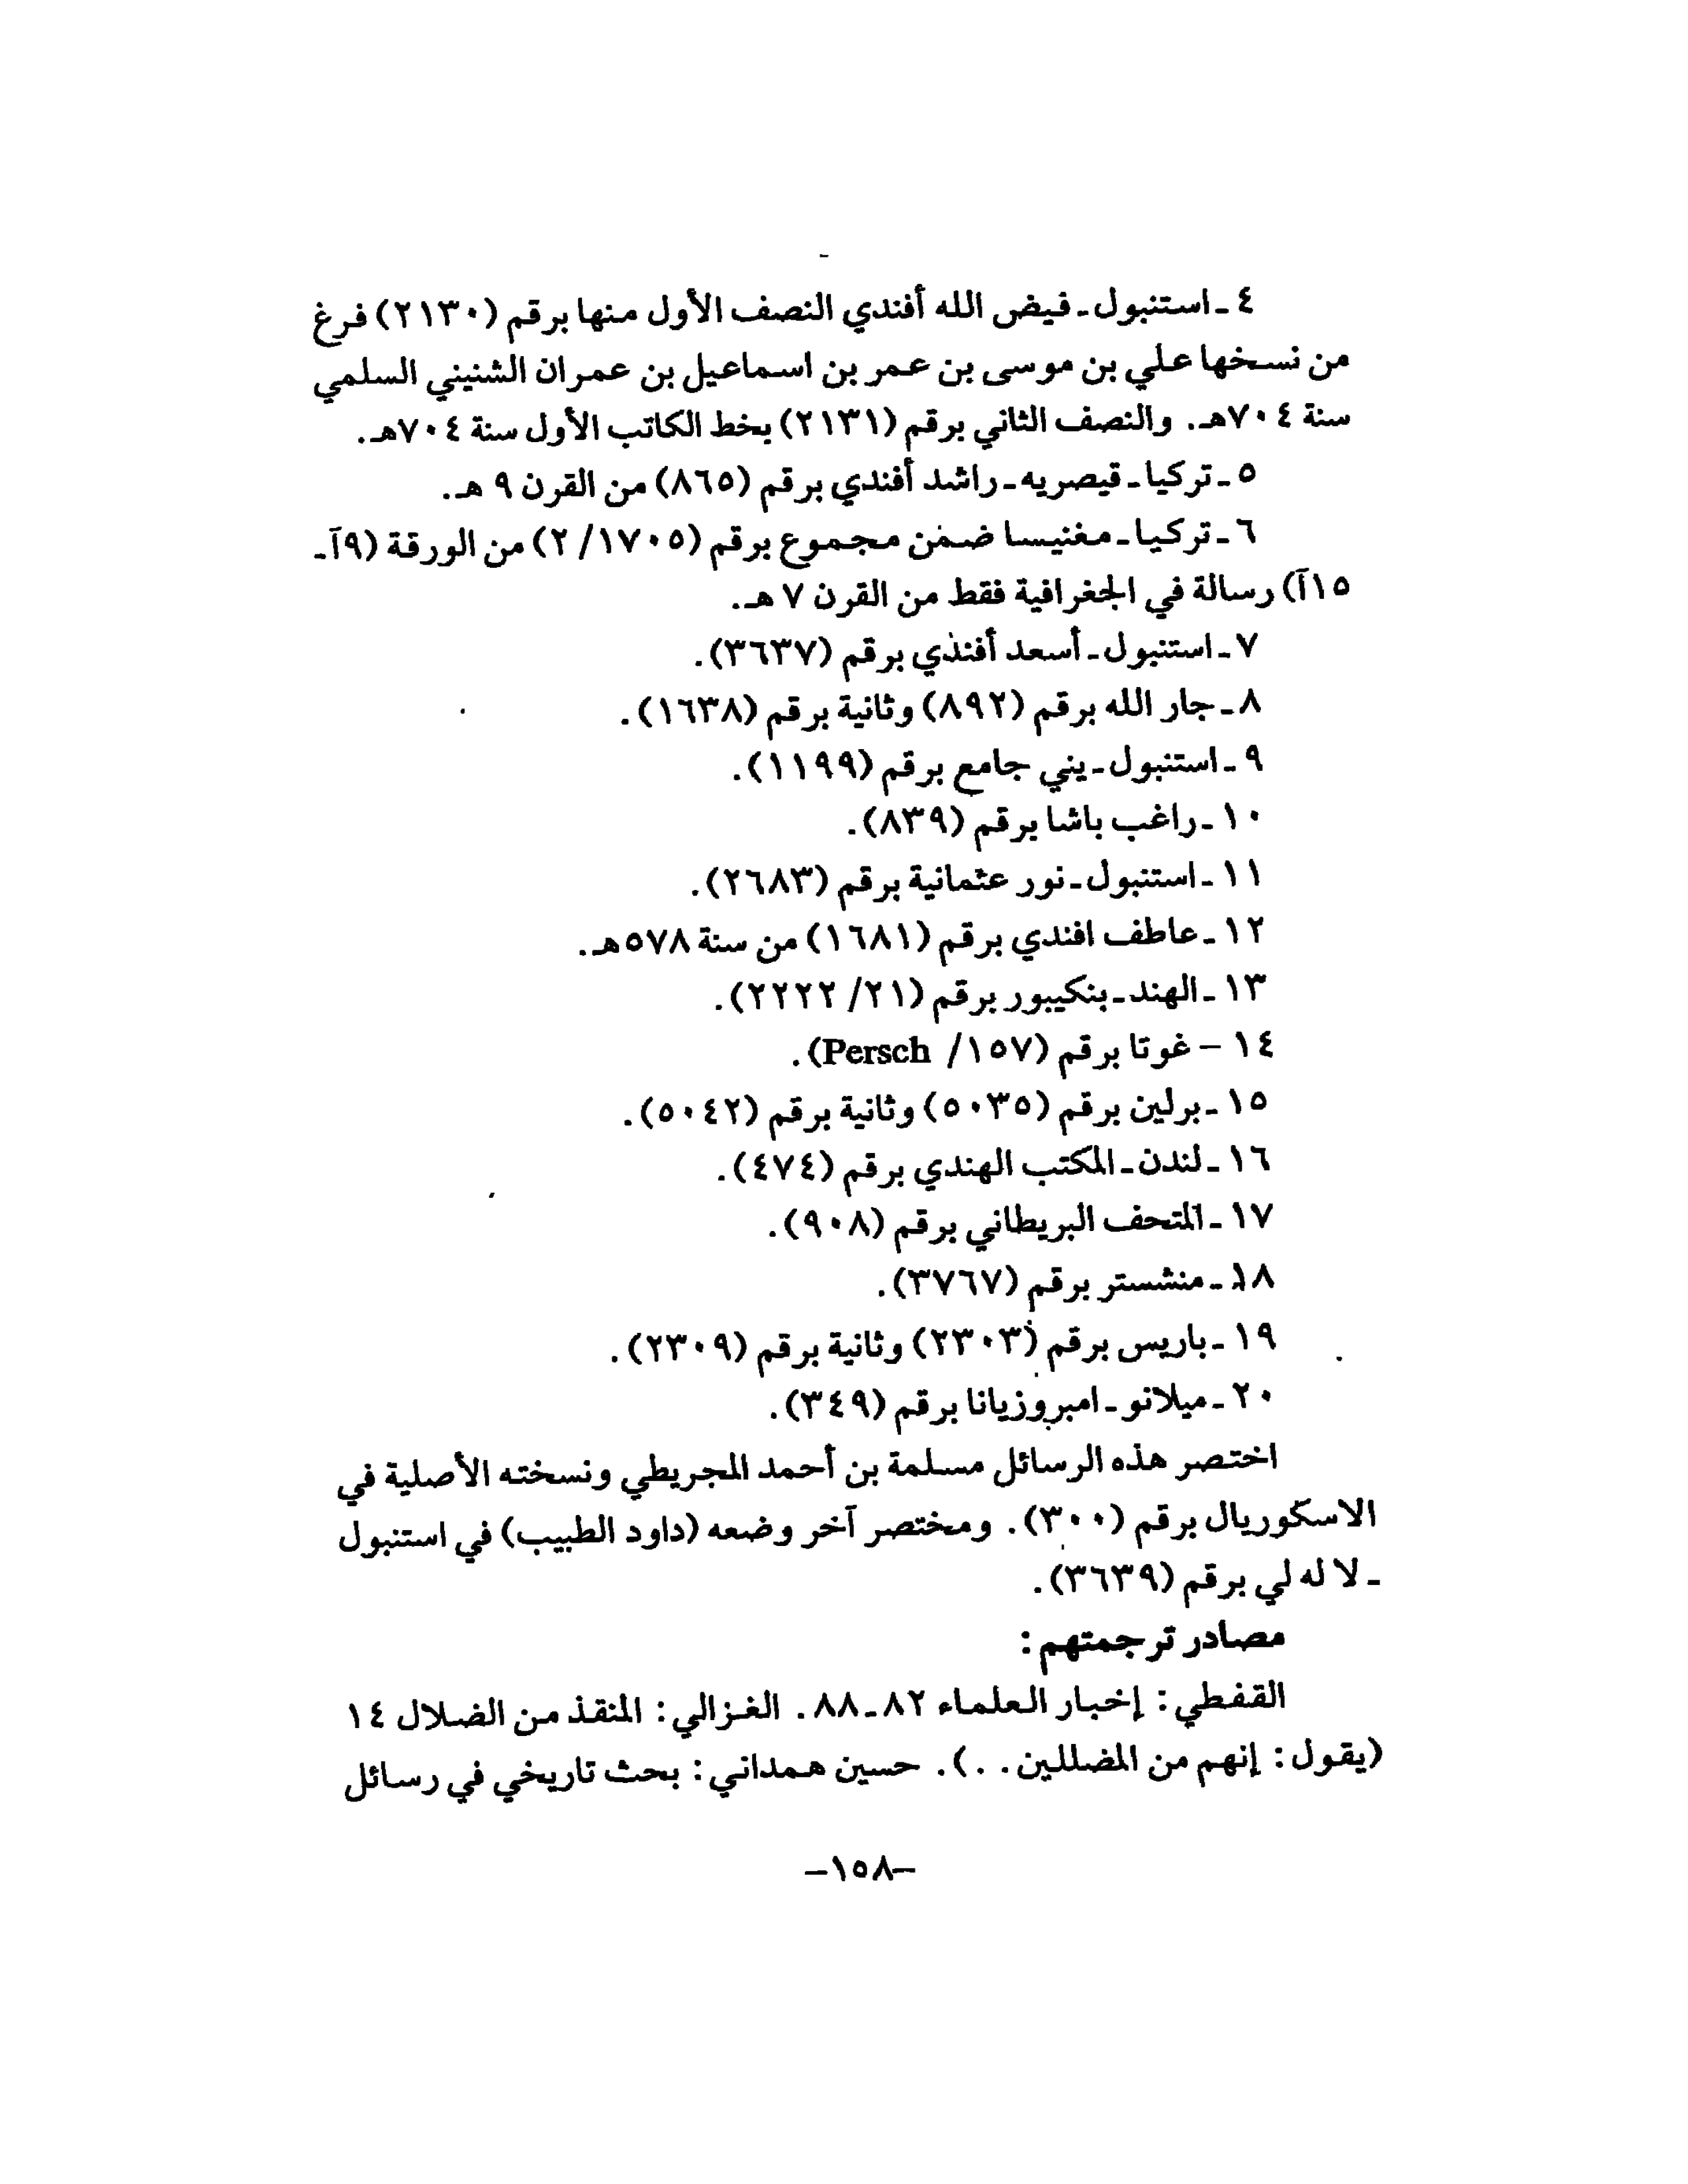 ٤ ـ استنبول ـ فيض الله أفندي النصف الأول منها برقم (٢١٣٠) فرغ
من نسخها علي بن موسى بن عمر بن اسماعيل بن عمران الشنيني السلمي
سنة ٧٠٤هـ. والنصف الثاني برقم (٢١٣١) بخط الكاتب الأول سنة ٧٠٤هـ.
٥ ـ تركيا ـ قيصريه ـ راشد أفندي برقم (٨٦٥) من القرن ٩ هـ.
٦ ـ تركيا ـ مغنيسا ضمن مجموع برقم (١٧٠٥/ ٢) من الورقة (٩آ ـ
١٥آ) رسالة في الجغرافية فقط من القرن ٧ هـ.
٧ ـ استنبول ـ أسعد أفندي برقم (٣٦٣٧).
٨ ـ جار الله برقم (٨٩٢) وثانية برقم (١٦٣٨).
٩ ـ استنبول ـ يني جامع برقم (١١٩٩).
١٠ ـ راغب باشا برقم (٨٣٩).
١١ ـ استنبول ـ نور عثمانية برقم (٢٦٨٣).
١٢ ـ عاطف افندي برقم (١٦٨١) من سنة ٥٧٨هـ.
١٣ ـ الهند ـ بنكيبور برقم (٢١/ ٢٢٢٢).
١٤ – غوتا برقم (١٥٧/ Persch).
١٥ ـ برلين برقم (٥٠٣٥) وثانية برقم (٥٠٤٢).
١٦ ـ لندن ـ المكتب الهندي برقم (٤٧٤).
١٧ ـ المتحف البريطاني برقم (٩٠٨).
١٨ ـ منشستر برقم (٣٧٦٧).
١٩ ـ باريس برقم (٢٣٠٣) وثانية برقم (٢٣٠٩).
٢٠ ـ ميلانو ـ امبروزيانا برقم (٣٤٩).
اختصر هذه الرسائل مسلمة بن أحمد المجريطي ونسخته الأصلية في
الاسكوريال برقم (٣٠٠). ومختصر آخر وضعه (داود الطبيب) في استنبول
ـ لا له لي برقم (٣٦٣٩).
مصادر ترجمتهم :
القفطي : إخبار العلماء ٨٢ ـ ٨٨. الغزالي : المنقذ من الضلال ١٤
(يقول : إنهم من المضللين . .). حسين همداني : بحث تاريخي في رسائل
–١٥٨–